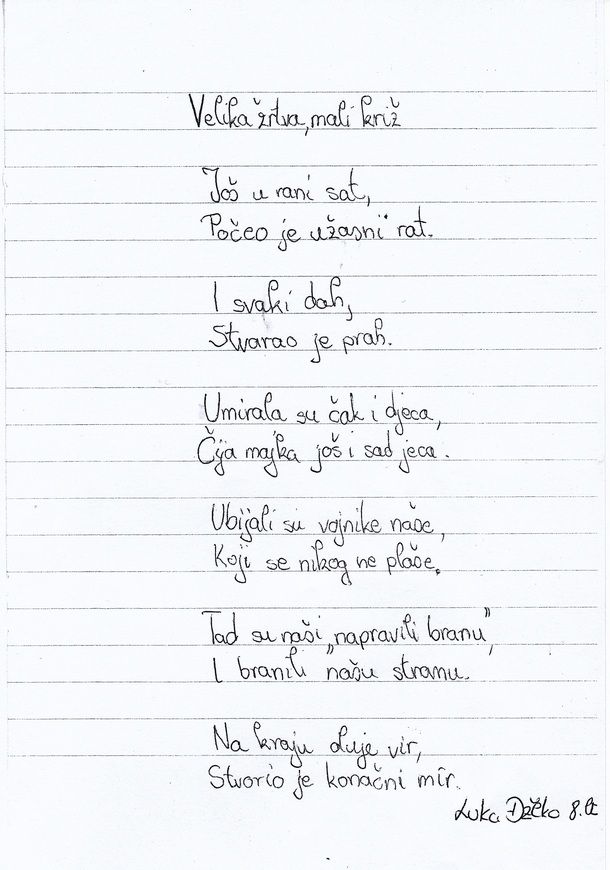 Velika žrtva, mali križ
Još u rani sat,
Počeo je užasni rat.
I svaki dah,
Stvarao je prah.
Umirala su čak i djeca,
Čija majka još i sad jeca.
Ubijali su vojnike naše,
Koji se nikog ne plaše.
Tad su naši „napravili branu”,
I branili našu stranu.
Na kraju oluje vir,
Stvorio je konačni mir.
Luka 8.